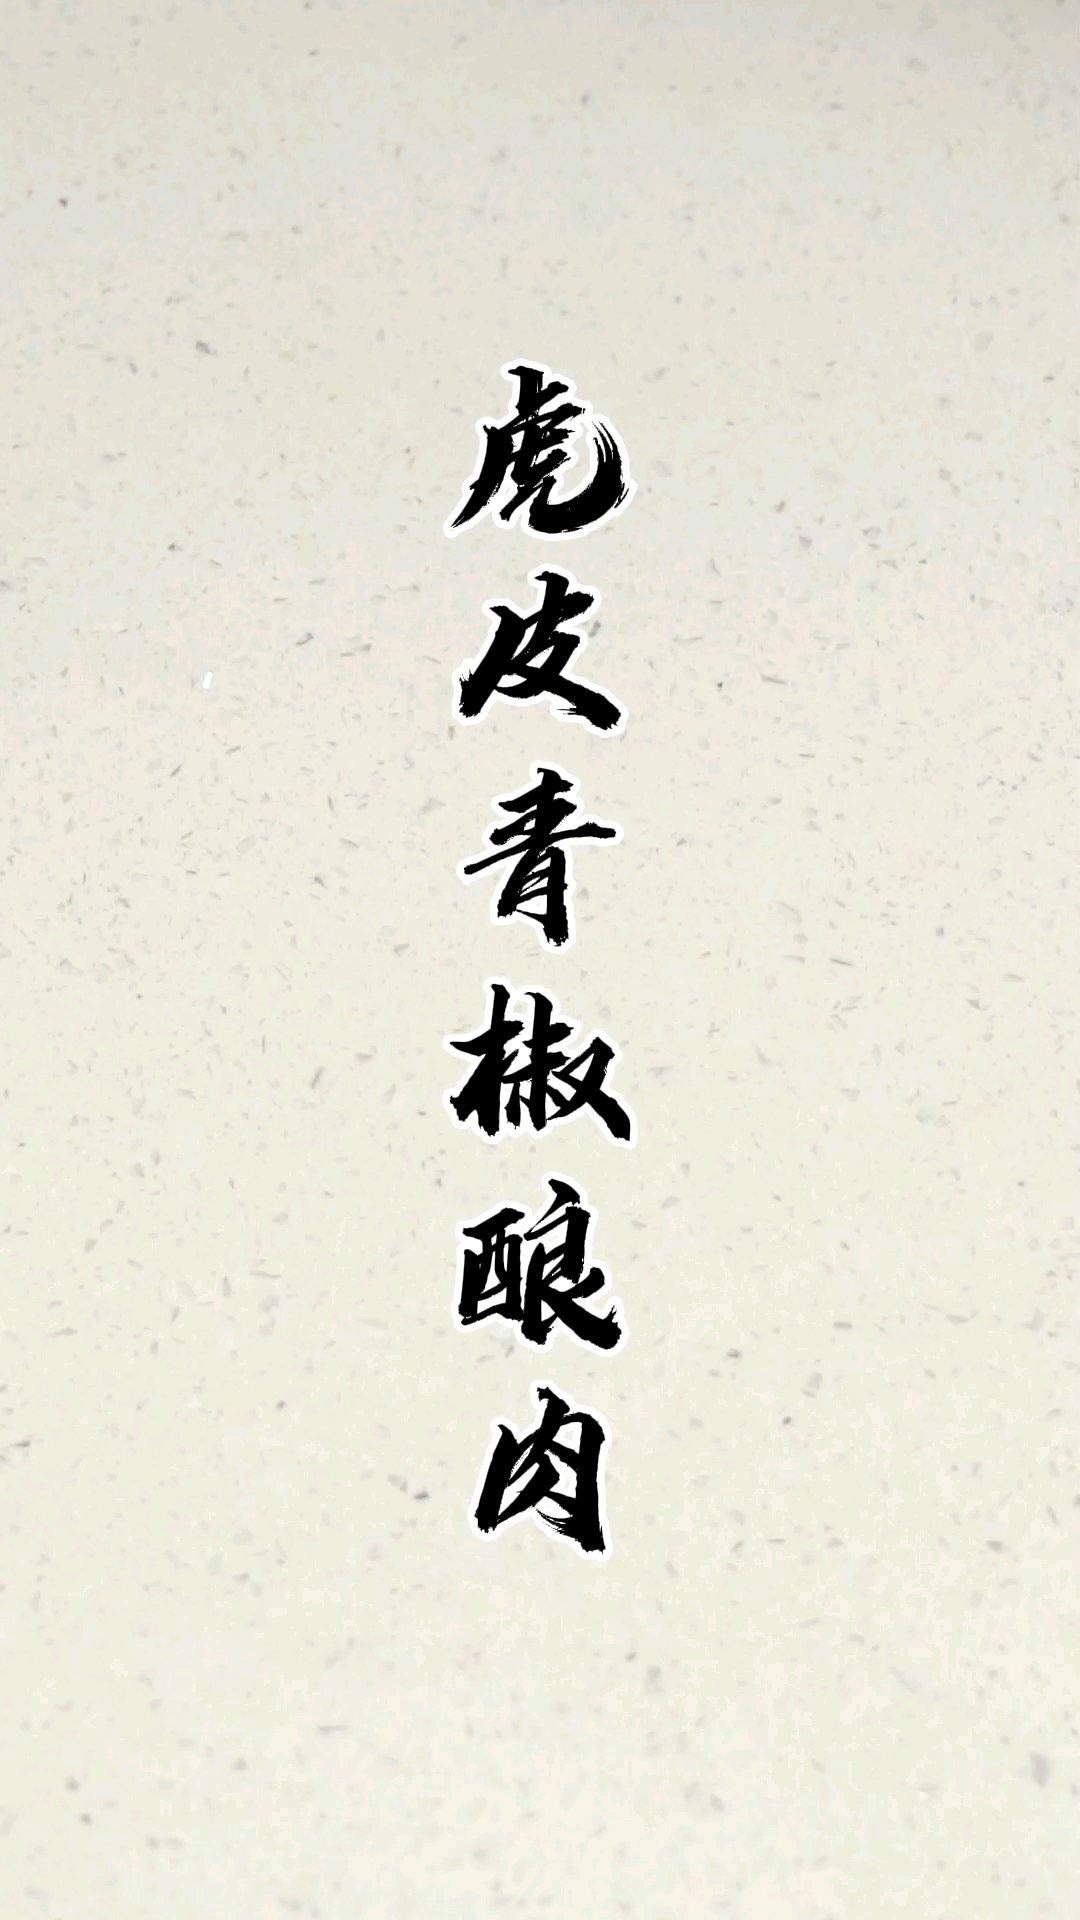 虎皮青椒酿肉